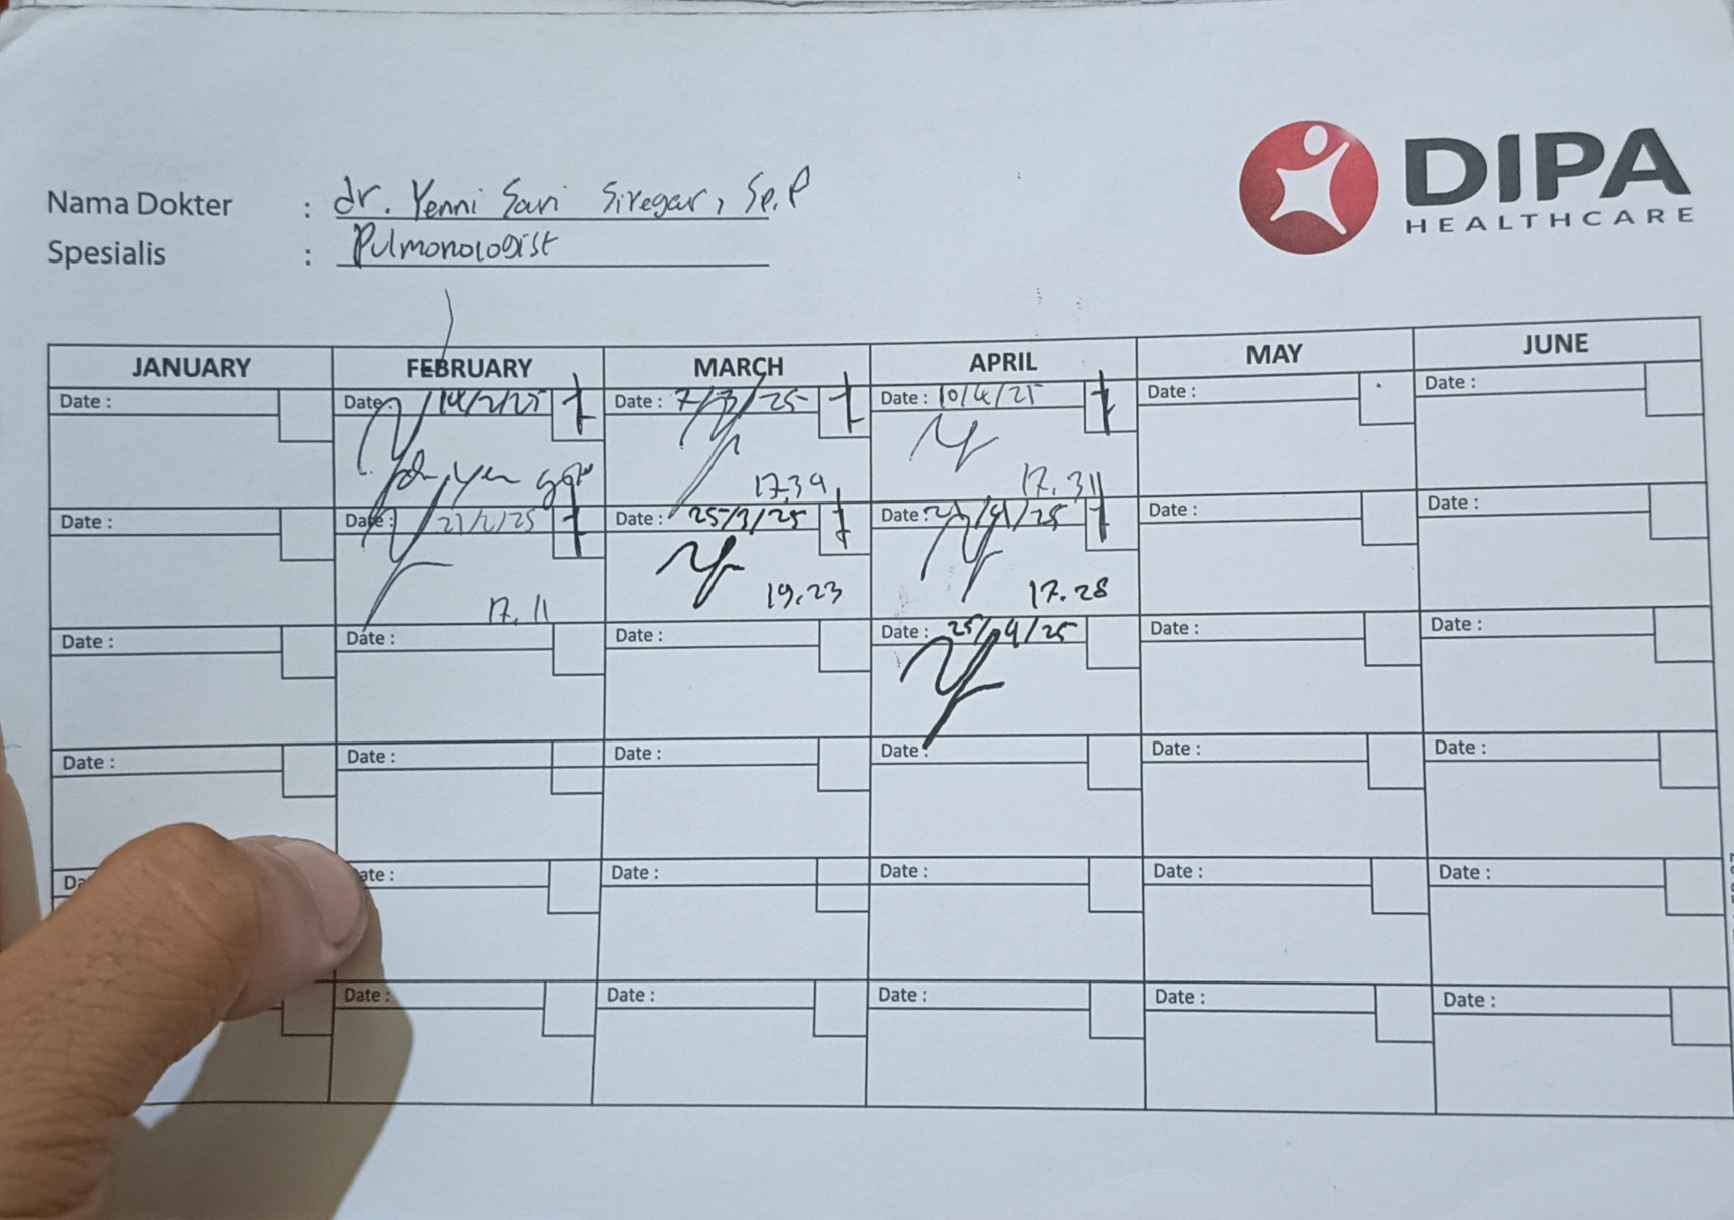 DIPA
HEALTHCARE
Nama Dokter : dr. Yenni Sari Siregar, Sp.P
Spesialis : Pulmonologist
JANUARY FEBRUARY MARCH APRIL MAY JUNE
Date : Date : 14/2/25 Date : 7/3/25 Date : 10/4/25 Date : Date :
17.39 17.31
Date : Date : 21/2/25 Date : 25/3/25 Date : /4/25 Date : Date :
17.11 19.23 17.28
Date : Date : Date : Date : 25/4/25 Date : Date :
Date : Date : Date : Date : Date : Date :
Da ate : Date : Date : Date : Date :
Date : Date : Date : Date : Date :